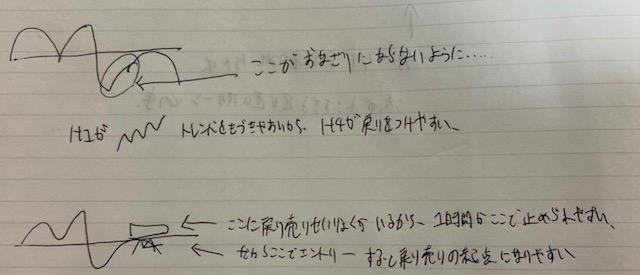 ここがおなざりにならないように.....
H1が トレンドをもうきやおいから、H4が戻りをつけやすい、
ここに戻り売りせいりょくがいるから、1時間がここで止められやすい、
だからここでエントリーすると戻り売りの起点になりやすい